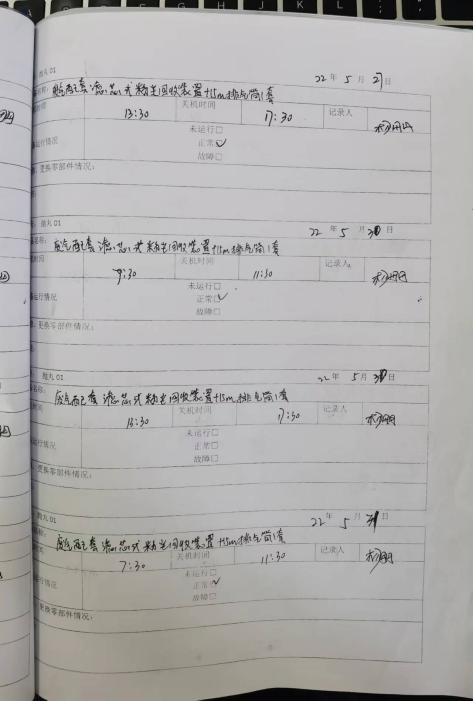 抛丸 01
22 年 5 月 27 日
名称： 废气配套滤芯式粉尘回收装置+15m排气筒1套
时间 13:30 关机时间 17:30 记录人
运行情况 未运行□
正常☑
故障□
更换零部件情况：
抛丸 01
22 年 5 月 30 日
名称： 废气配套滤芯式粉尘回收装置+15m排气筒1套
时间 9:30 关机时间 11:30 记录人
运行情况 未运行□
正常☑
故障□
更换零部件情况：
抛丸 01
22 年 5 月 30 日
名称： 废气配套滤芯式粉尘回收装置+15m排气筒1套
时间 13:30 关机时间 17:30 记录人
运行情况 未运行□
正常□
故障□
更换零部件情况：
抛丸 01
22 年 5 月 31 日
废气配套滤芯式粉尘回收装置+15m排气筒1套
时间 7:30 关机时间 11:30 记录人
运行情况 未运行□
正常☑
故障□
更换零部件情况：